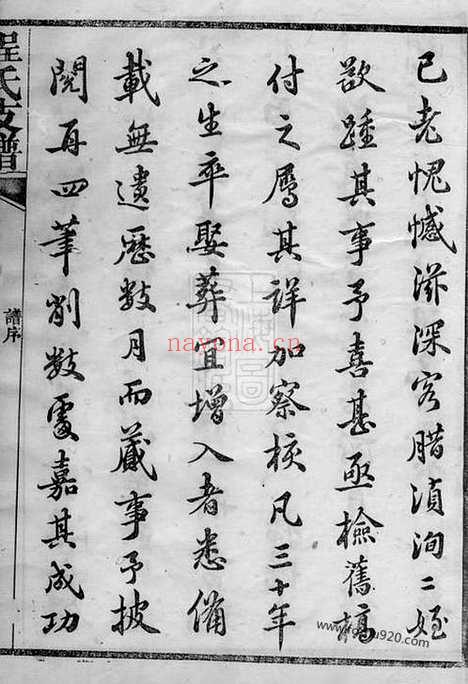 已老愧憾滋深客腊湞洵二姪
欲踵其事予喜甚亟檢舊稿
付之屬其詳加察核凡三十年
之生卒娶葬宜增入者悉備
載無遺歷數月而蕆事予披
閱再四筆削數處嘉其成功
程氏支譜
譜序
nayona.cn